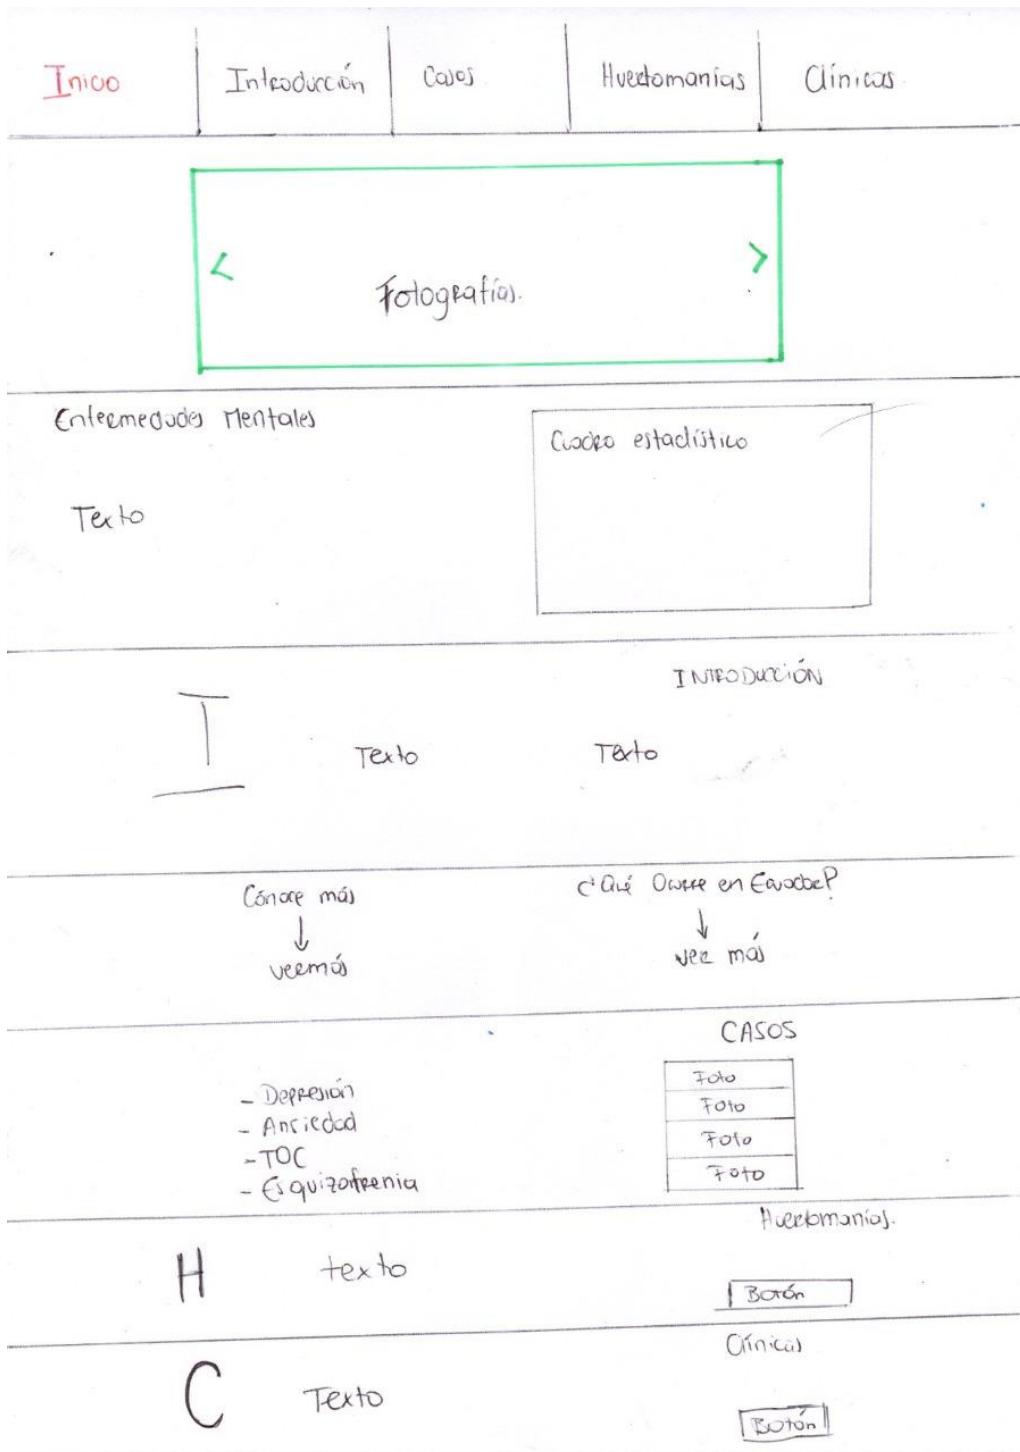 Inicio Introducción Casos Huertomanías Clínicas.
< >
Fotografías.
Enfermedades Mentales
Cuadro estadístico
Texto
INTRODUCCIÓN
I Texto Texto
Cónoce más ¿Qué Ocurre en Ecuador?
↓ ↓
ver más ver más
CASOS
- Depresión
- Ansiedad
- TOC
- Esquizofrenia
Foto
Foto
Foto
Foto
Huertomanías.
H texto
Botón
Clínicas
C Texto
Botón